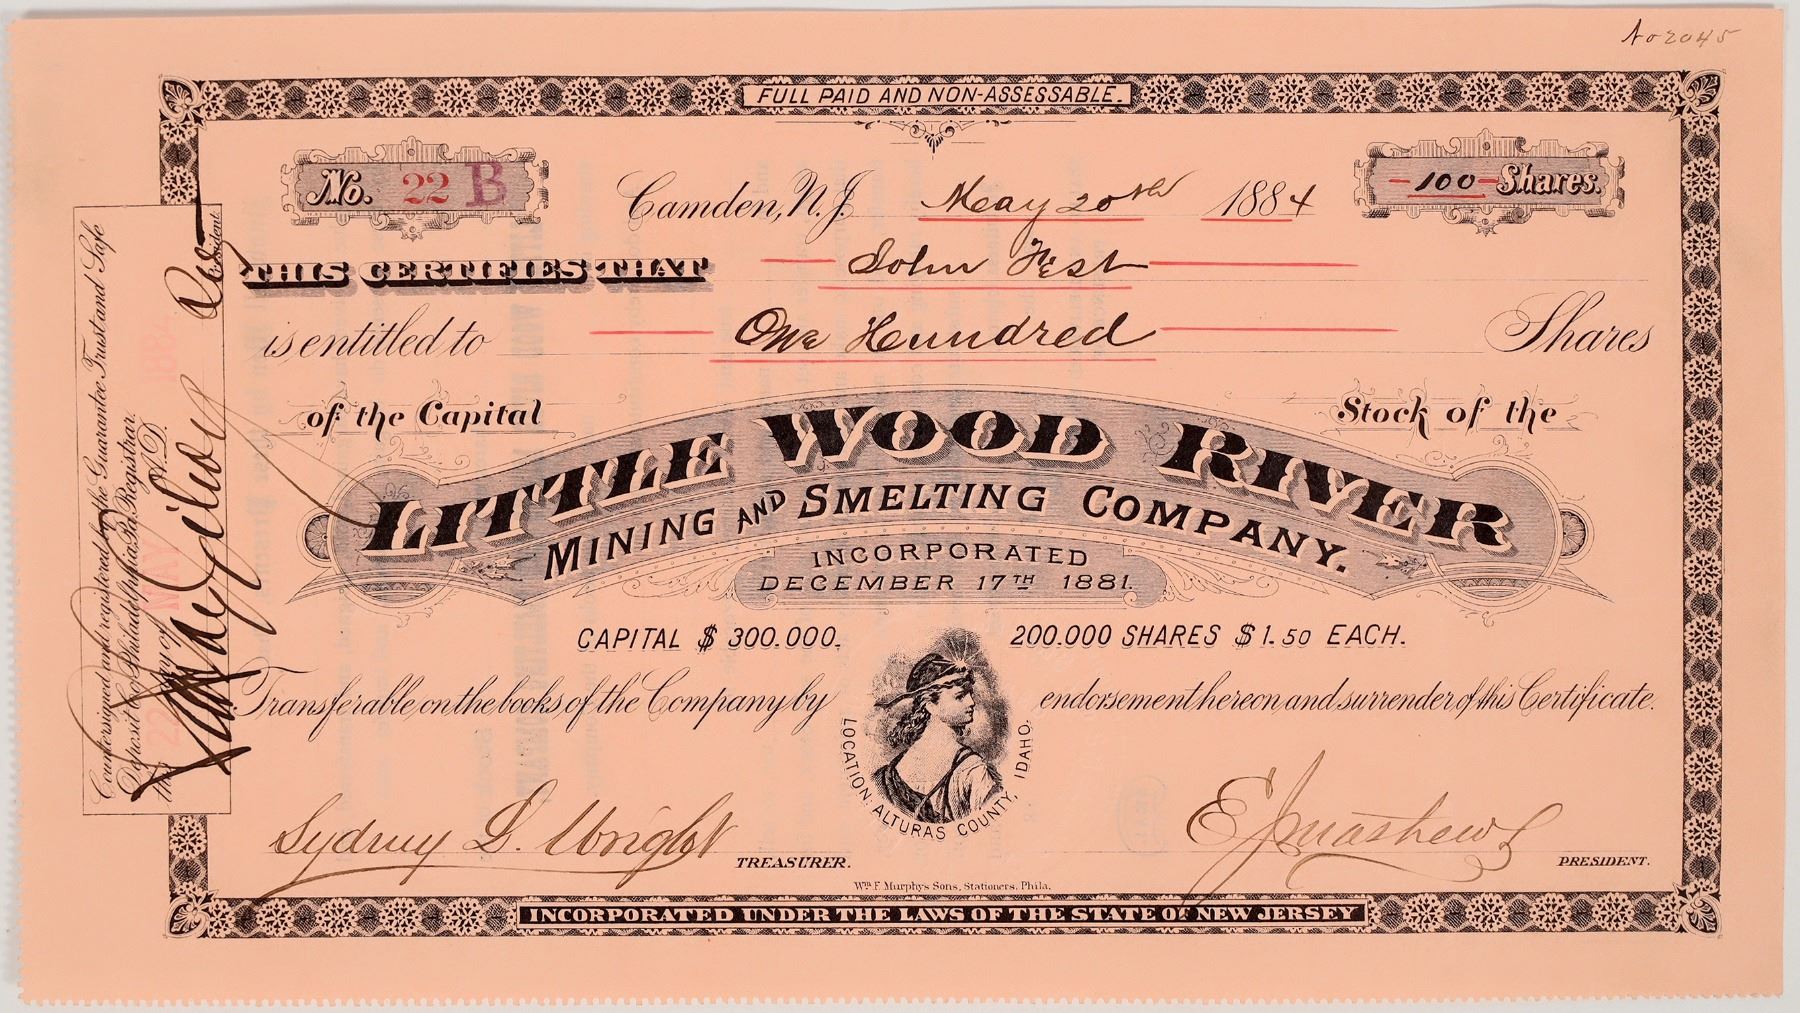 No 2045
FULL PAID AND NON-ASSESSABLE.
No. 22 B
Camden, N.J. May 20th 1884
-100- Shares.
THIS CERTIFIES THAT John Fest
is entitled to One Hundred Shares
of the Capital Stock of the
LITTLE WOOD RIVER
MINING AND SMELTING COMPANY.
INCORPORATED
DECEMBER 17TH 1881.
CAPITAL $300.000. 200.000 SHARES $1.50 EACH.
Transferable on the books of the Company by endorsement hereon and surrender of this Certificate.
LOCATION: ALTURAS COUNTY, IDAHO.
Sydney L. Wright TREASURER.
E J Mathews PRESIDENT.
Wm. F. Murphys Sons, Stationers. Phila.
INCORPORATED UNDER THE LAWS OF THE STATE OF NEW JERSEY
Countersigned and registered by the Guarantee Trust and Safe
Deposit Co. Philadelphia Pa. Registrar.
this 22 day of MAY 1884 A.D.
President.